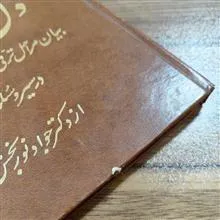 دل
بیان مراحل ترقی
در سیر و سلوک
از دکتر جواد نوربخش